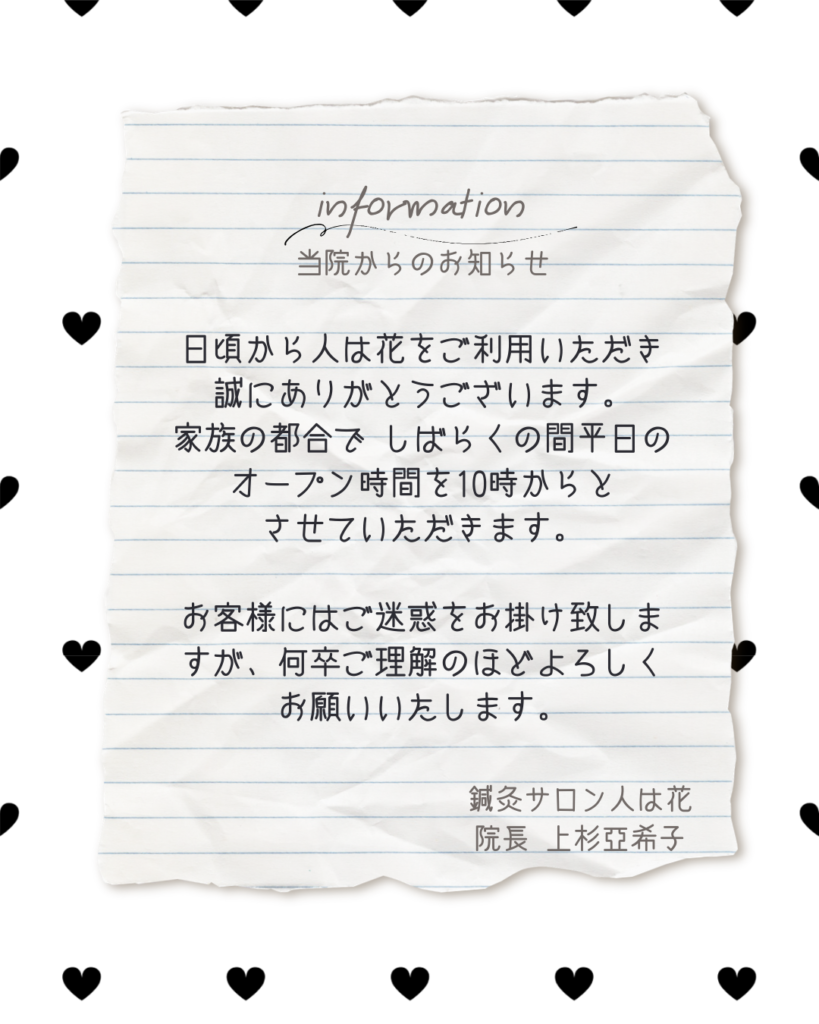 information
当院からのお知らせ
日頃から人は花をご利用いただき
誠にありがとうございます。
家族の都合で しばらくの間平日の
オープン時間を10時からと
させていただきます。
お客様にはご迷惑をお掛け致しま
すが、何卒ご理解のほどよろしく
お願いいたします。
鍼灸サロン人は花
院長 上杉亞希子